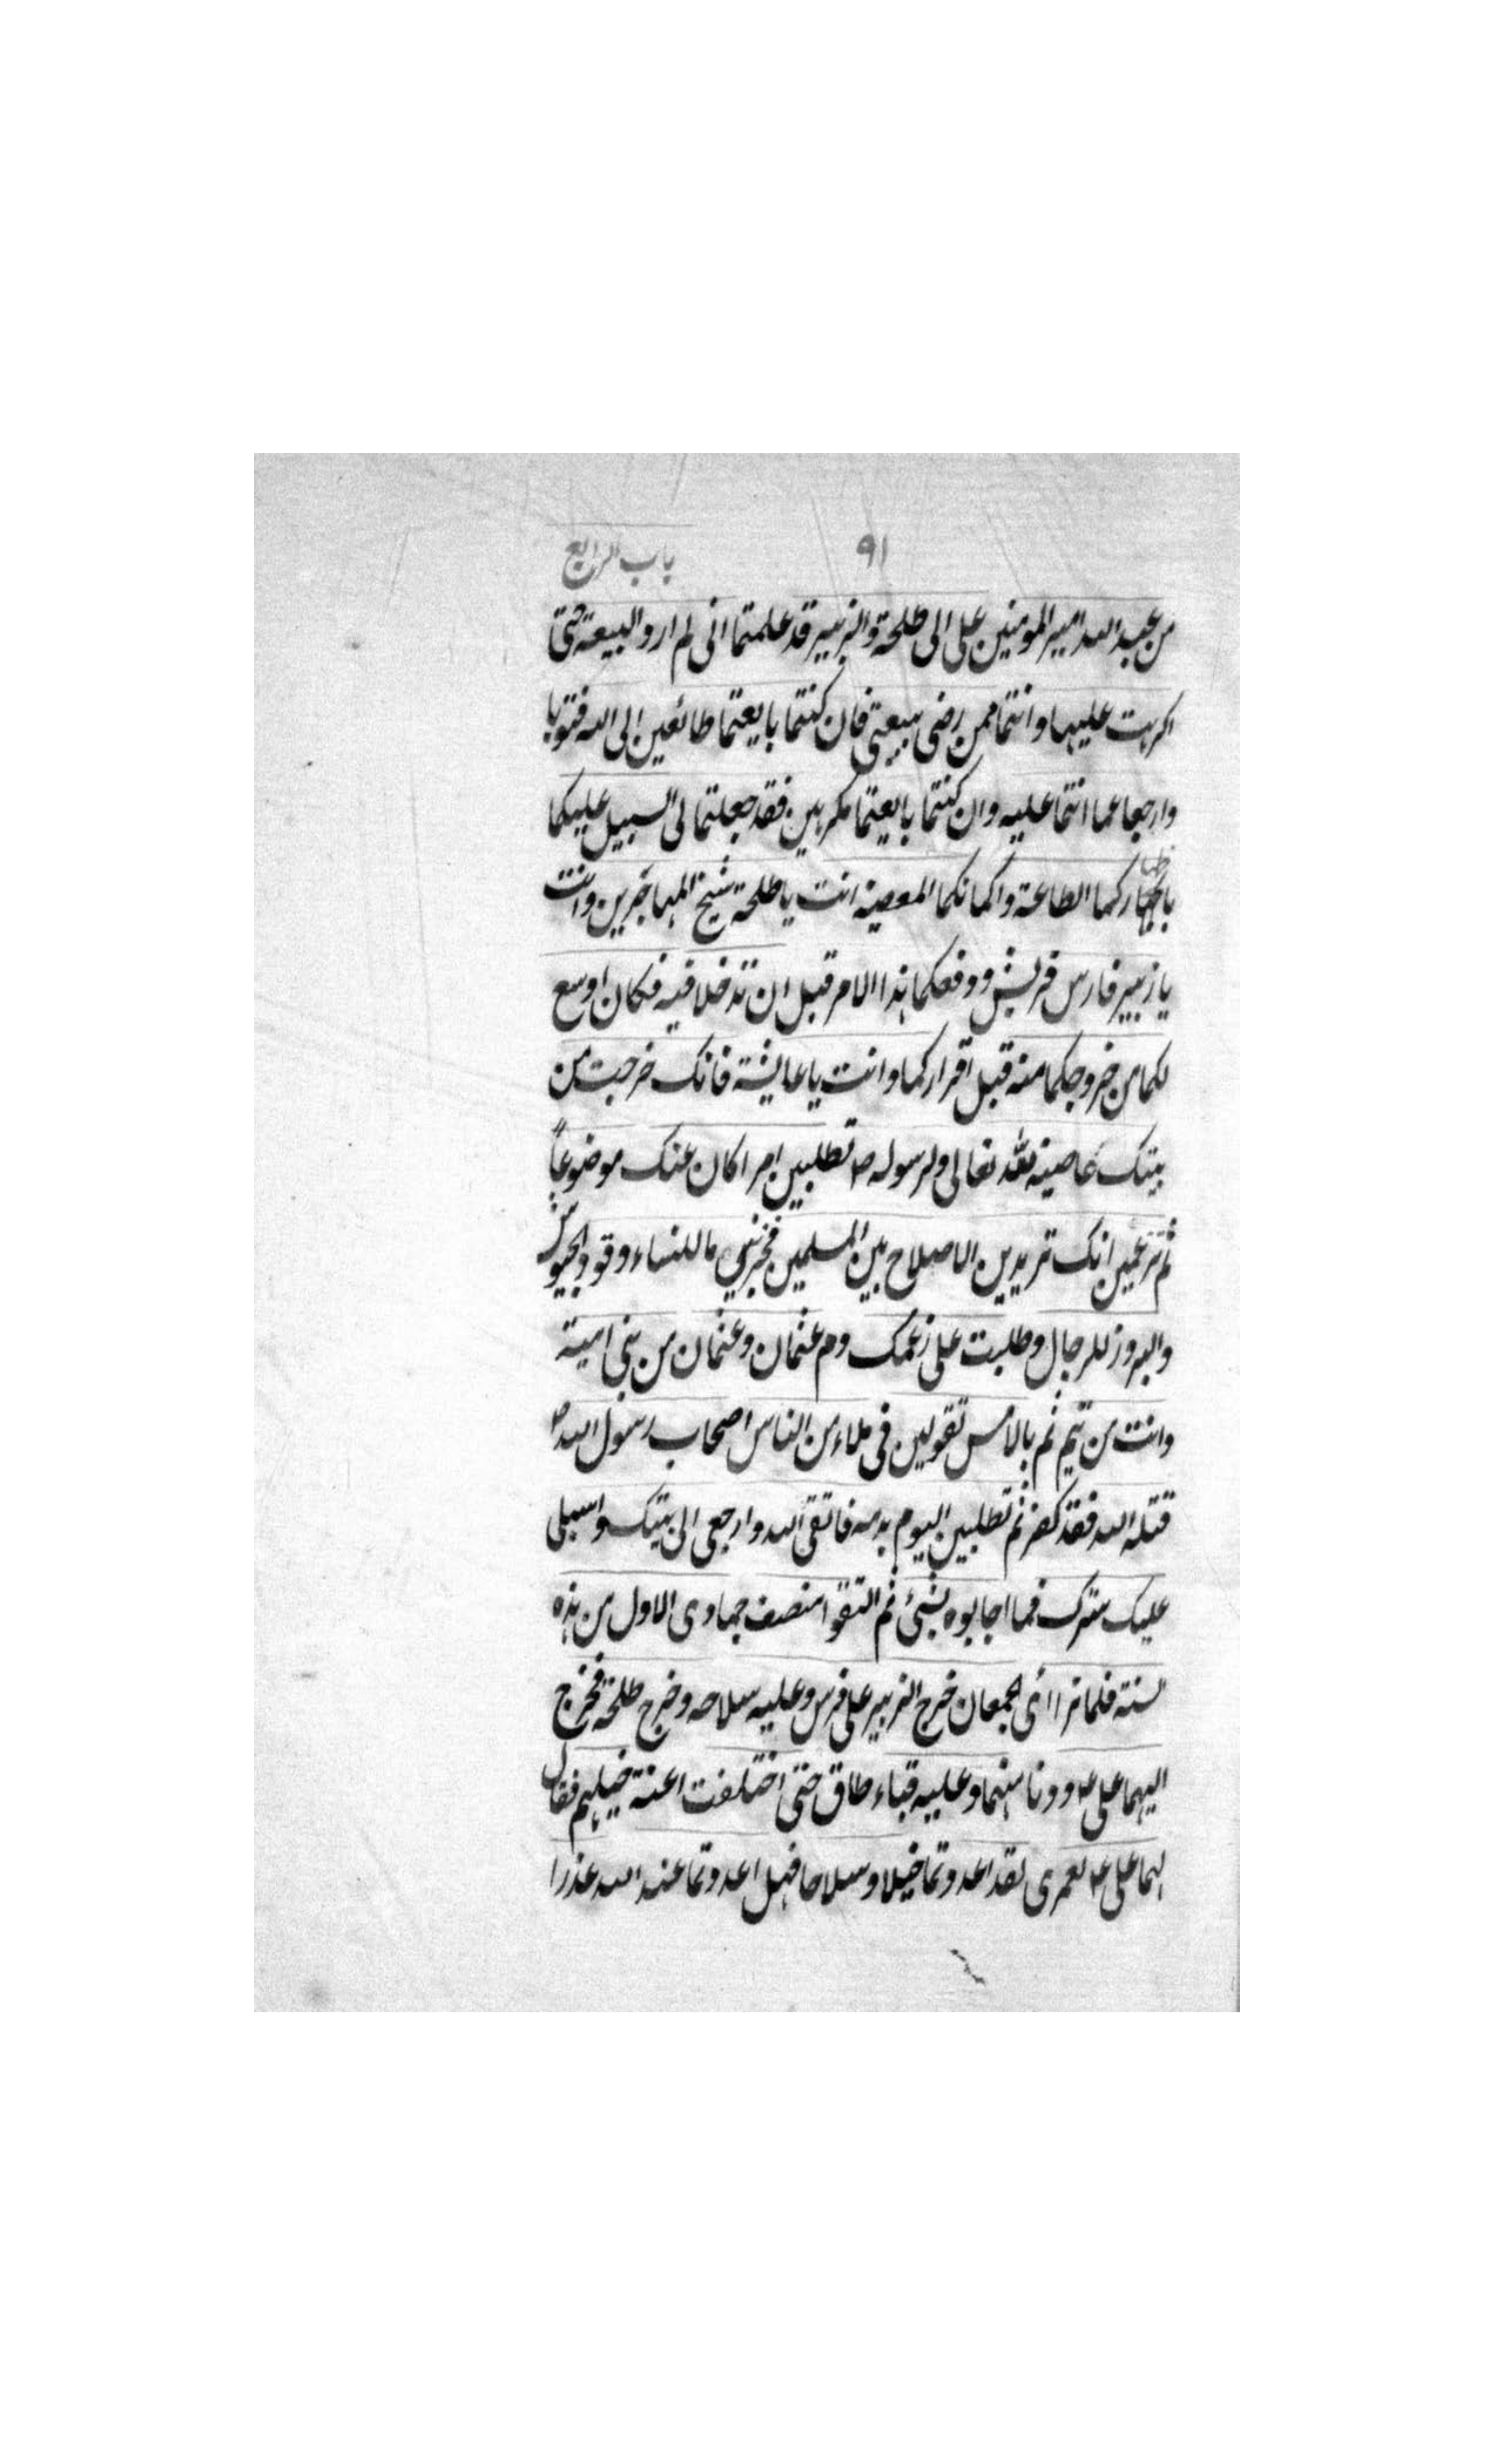 ٩١ باب الرابع
من عبد الله امير المومنين علی الی طلحة والزبير قد علمتما انی لم ارد البيعة حتی
اکرهت عليها وانتما ممن رضی ببيعتی فان کنتما بايعتما طائعين الی الله فتوبا
وارجعا عما انتما عليه وان کنتما بايعتما مکرهين فقد جعلتما لی السبيل عليکما
باظهارکما الطاعة واکمانکما المعصية انت يا طلحة شيخ المهاجرين وانت
يا زبير فارس قريش ودفعکما هذا الامر قبل ان تدخلا فيه فکان اوسع
لکما من خروجکما منه قبل اقرارکما وانت يا عايشة فانک خرجت من
بيتک عاصية لله تعالی ولرسوله ص تطلبين امرا کان عنک موضوعاً
ثم تزعمين انک تريدين الاصلاح بين المسلمين فخبرينی ما للنساء وقود الجيوش
والبروز للرجال وطلبت علی زعمک دم عثمان وعثمان من بنی امية
وانت من تيم ثم بالامس تقولين فی ملاء من الناس اصحاب رسول الله ص
قتله الله فقد کفر ثم تطلبين اليوم بدمه فاتقی الله وارجعی الی بيتک واسبلی
عليک سترک فما اجابوه بشیء ثم التقوا منصف جمادی الاول من هذه
السنة فلما تراای الجمعان خرج الزبير علی فرس وعليه سلاحه وخرج طلحة فخرج
اليهما علی ع ودنا منهما وعليه قباء طاق حتی اختلفت اعنة خيلهم فقال
لهما علی ع لعمری لقد اعددتما خيلا وسلاحا فهل اعددتما عند الله عذرا